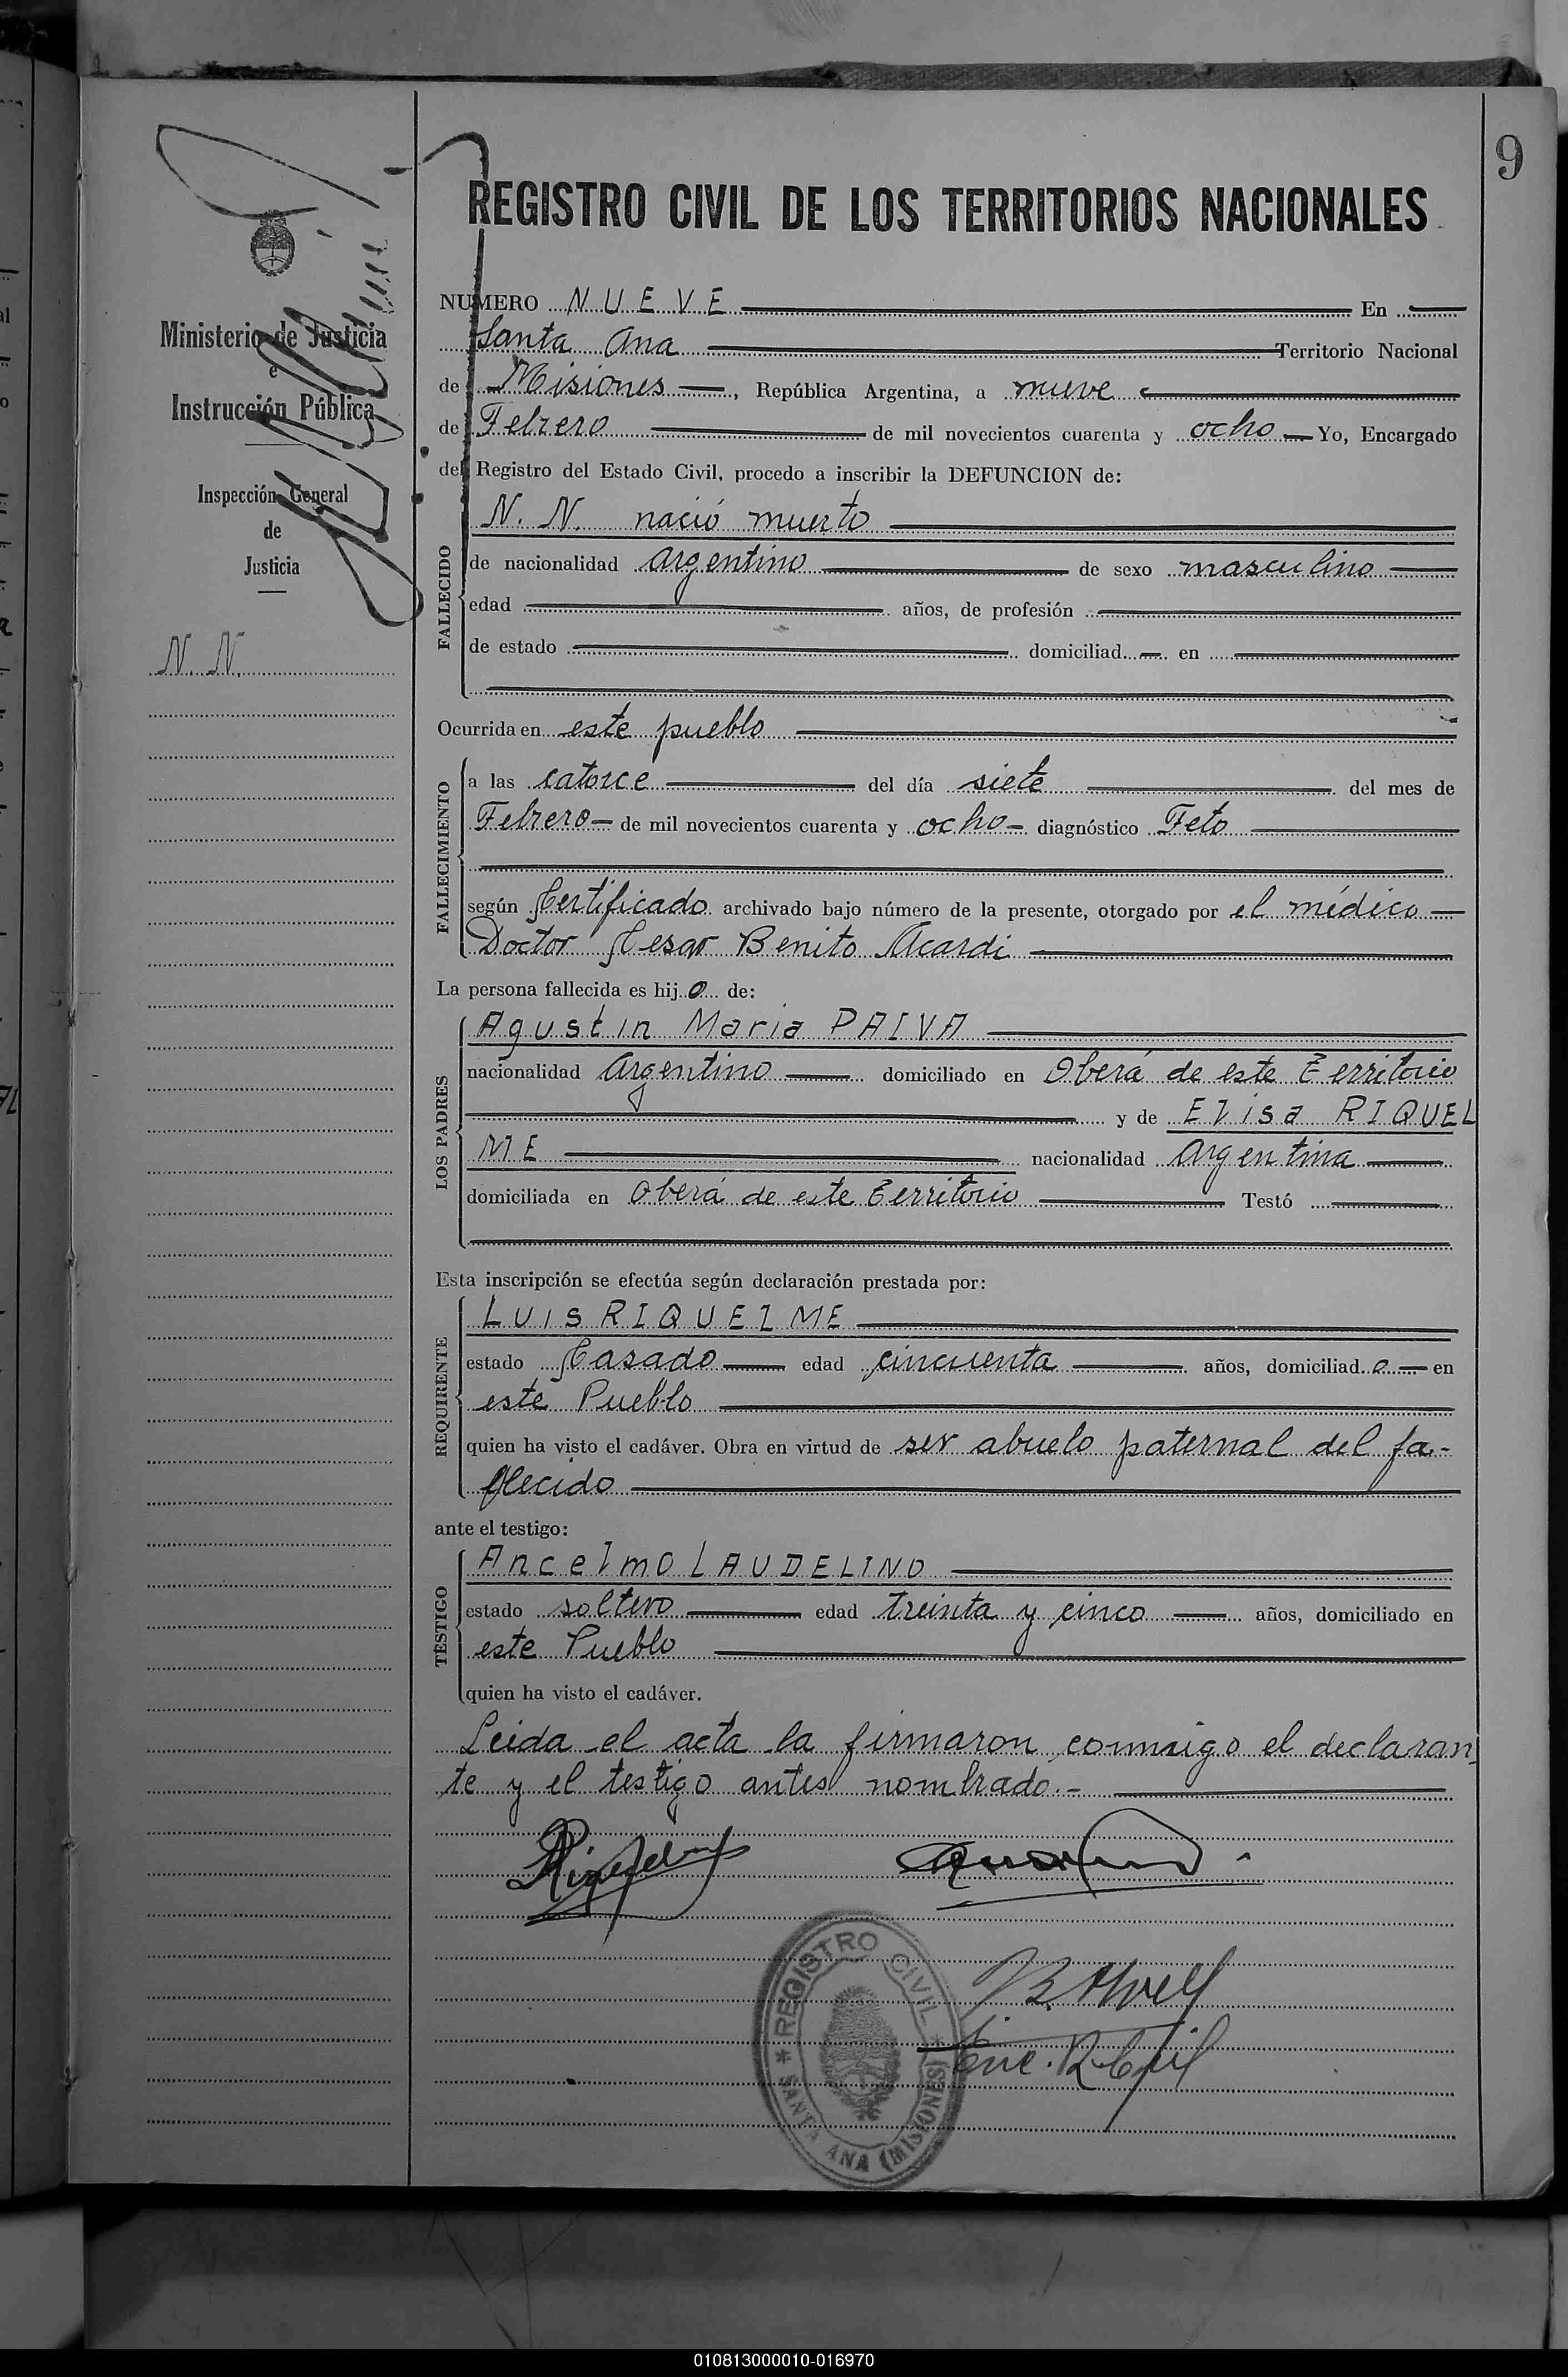 9
REGISTRO CIVIL DE LOS TERRITORIOS NACIONALES
Ministerio de Justicia
e
Instrucción Pública
Inspección General
de
Justicia
N. N.
NUMERO NUEVE En
Santa Ana Territorio Nacional
de Misiones, República Argentina, a nueve
de Febrero de mil novecientos cuarenta y ocho Yo, Encargado
del Registro del Estado Civil, procedo a inscribir la DEFUNCION de:
FALLECIDO
N. N. nació muerto
de nacionalidad argentino de sexo masculino
edad años, de profesión
de estado domiciliad en
Ocurrida en este pueblo
FALLECIMIENTO
a las catorce del día siete del mes de
Febrero de mil novecientos cuarenta y ocho diagnóstico Feto
según Certificado archivado bajo número de la presente, otorgado por el médico
Doctor Cesar Benito Acardi
La persona fallecida es hijo de:
LOS PADRES
Agustin Maria PAIVA
nacionalidad Argentino domiciliado en Oberá de este Territorio
y de Elisa RIQUEL
ME nacionalidad Argentina
domiciliada en Oberá de este Territorio Testó
Esta inscripción se efectúa según declaración prestada por:
REQUIRENTE
LUIS RIQUELME
estado Casado edad cincuenta años, domiciliado en
este Pueblo
quien ha visto el cadáver. Obra en virtud de ser abuelo paternal del fa-
llecido
ante el testigo:
TESTIGO
Ancelmo LAUDELINO
estado soltero edad treinta y cinco años, domiciliado en
este Pueblo
quien ha visto el cadáver.
Leida el acta la firmaron conmigo el declaran
te y el testigo antes nombrado.-
REGISTRO CIVIL
SANTA ANA (MISIONES)
Enc. R. Civil
010813000010-016970